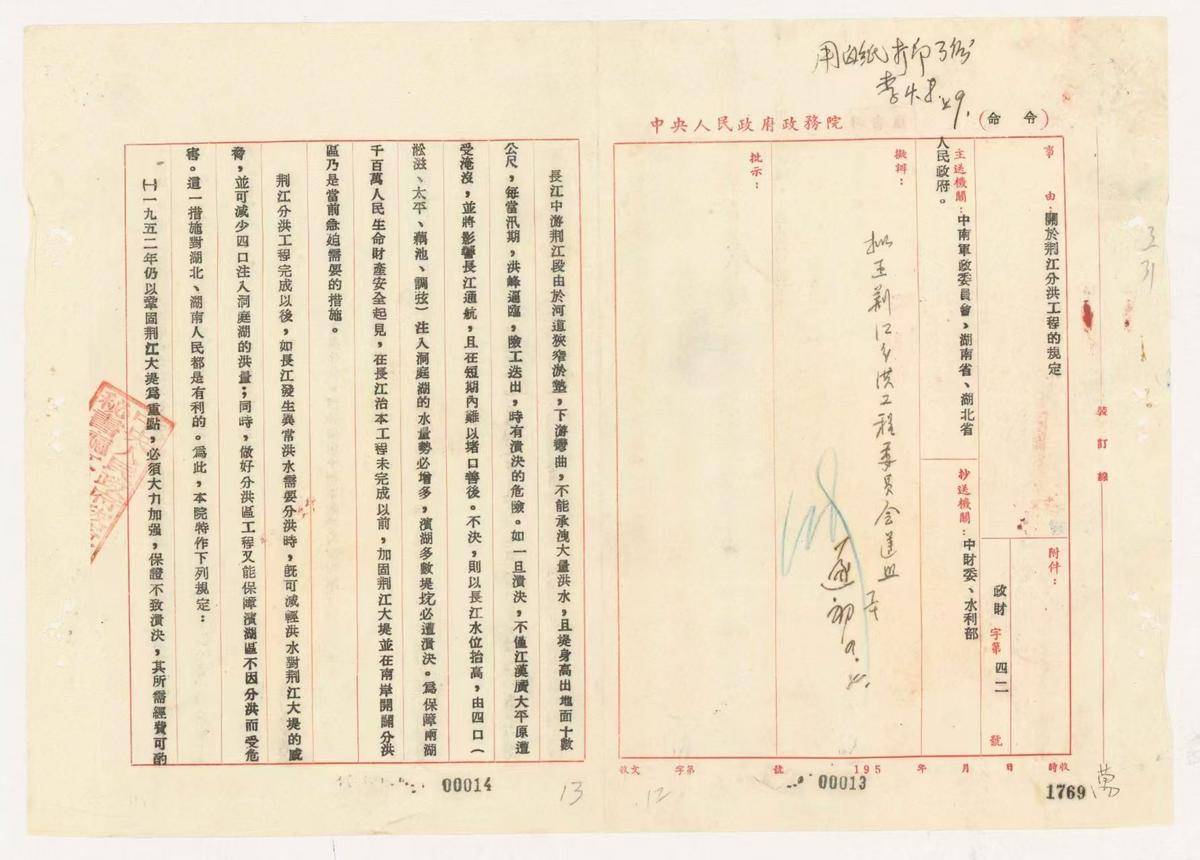 用白紙打印3份
中央人民政府政務院
(命令)
事由:關於荆江分洪工程的規定
附件:
政財字第四二號
主送機關:中南軍政委員會,湖南省、湖北省
人民政府。
抄送機關:中財委、水利部
擬辦:
批示:
裝訂線
收文 字第 號 195 年 月 日 時收
00013
12
1769
萬
長江中游荆江段由於河道狹窄淤墊,下游彎曲,不能承洩大量洪水,且堤身高出地面十數
公尺,每當汛期,洪峰逼臨,險工迭出,時有潰決的危險。如一旦潰決,不僅江漢廣大平原遭
受淹沒,並將影響長江通航,且在短期內難以堵口善後。不決,則以長江水位抬高,由四口(
淞滋、太平、藕池、調弦)注入洞庭湖的水量勢必增多,濱湖多數堤垸必遭潰決。爲保障兩湖
千百萬人民生命財產安全起見,在長江治本工程未完成以前,加固荆江大堤並在南岸開闢分洪
區乃是當前急迫需要的措施。
荆江分洪工程完成以後,如長江發生異常洪水需要分洪時,既可減輕洪水對荆江大堤的威
脅,並可減少四口注入洞庭湖的洪量;同時,做好分洪區工程又能保障濱湖區不因分洪而受危
害。這一措施對湖北、湖南人民都是有利的。爲此,本院特作下列規定:
㈠一九五二年仍以鞏固荆江大堤爲重點,必須大力加强,保證不致潰決,其所需經費可酌
00014
13